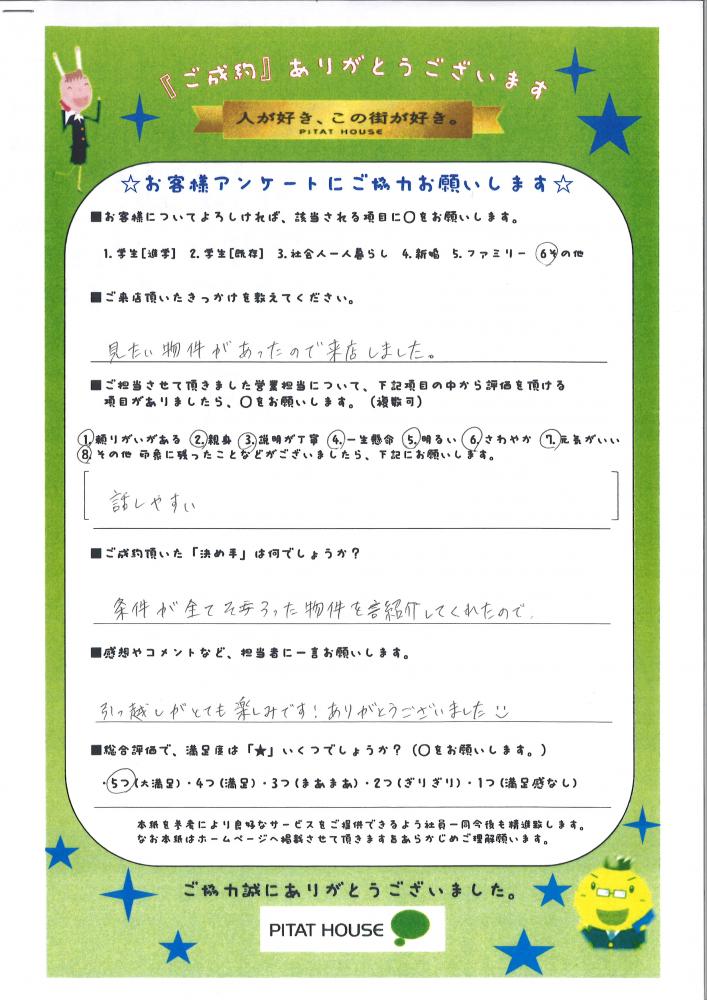 『ご成約』ありがとうございます
人が好き、この街が好き。
PITAT HOUSE
☆お客様アンケートにご協力お願いします☆
■お客様についてよろしければ、該当される項目に〇をお願いします。
1.学生[進学] 2.学生[既存] 3.社会人一人暮らし 4.新婚 5.ファミリー 6その他
■ご来店頂いたきっかけを教えてください。
見たい物件があったので来店しました。
■ご担当させて頂きました営業担当について、下記項目の中から評価を頂ける
項目がありましたら、〇をお願いします。（複数可）
1.頼りがいがある 2.親身 3.説明が丁寧 4.一生懸命 5.明るい 6.さわやか 7.元気がいい
8.その他 印象に残ったことなどがございましたら、下記にお願いします。
話しやすい
■ご成約頂いた「決め手」は何でしょうか？
条件が全てそろった物件を紹介してくれたので.
■感想やコメントなど、担当者に一言お願いします。
引っ越しがとても楽しみです！ありがとうございました
■総合評価で、満足度は「★」いくつでしょうか？（〇をお願いします。）
・5つ(大満足)・4つ(満足)・3つ(まあまあ)・2つ(ぎりぎり)・1つ(満足感なし)
本紙を参考により良好なサービスをご提供できるよう社員一同今後も精進致します。
なお本紙はホームページへ掲載させて頂きます旨あらかじめご理解願います。
ご協力誠にありがとうございました。
PITAT HOUSE